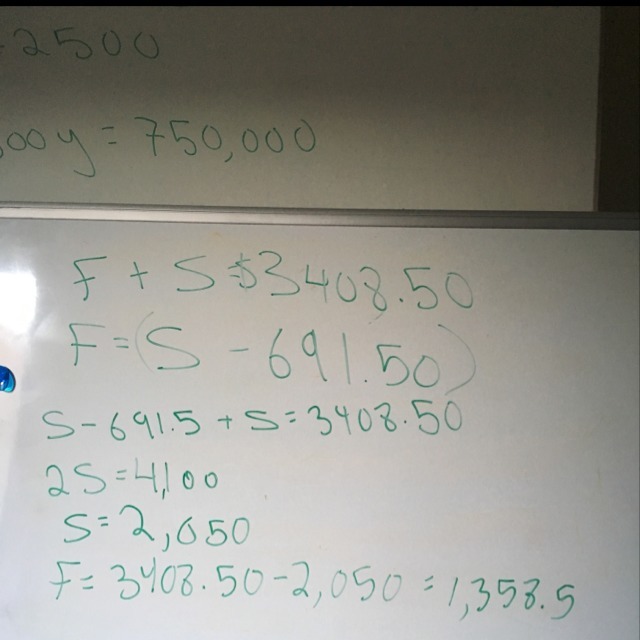 2500
00y = 750,000
F + S = $3408.50
F = (S - 691.50)
S - 691.5 + S = 3408.50
2S = 4,100
S = 2,050
F = 3408.50 - 2,050 = 1,358.5